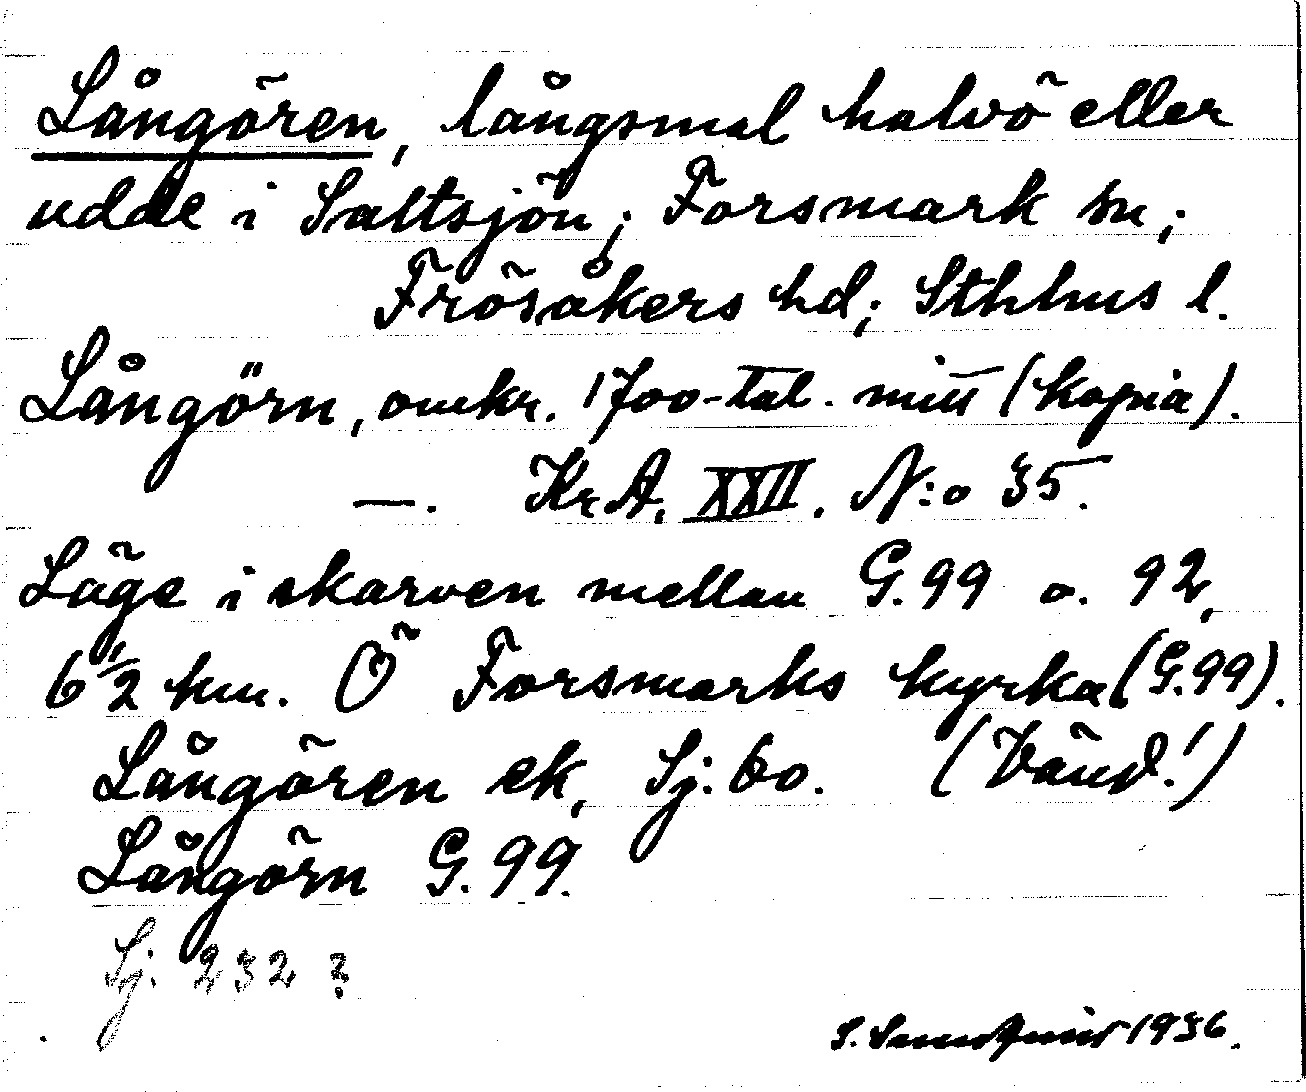 Långören, långsmal halvö eller
udde i Saltsjön; Forsmark sn;
Frösåkers hd; Sthlms l.
Långörn, omkr. 1700-tal. mitt (kopia).
—. KrA. XXII. N:o 35.
Läge i skarven mellan G.99 o. 92,
6 1/2 km. Ö Forsmarks kyrka (G.99).
Långören ek, Sj. 60. (Vänd!)
Långörn G.99.
Sj. 232?
S. 1936.